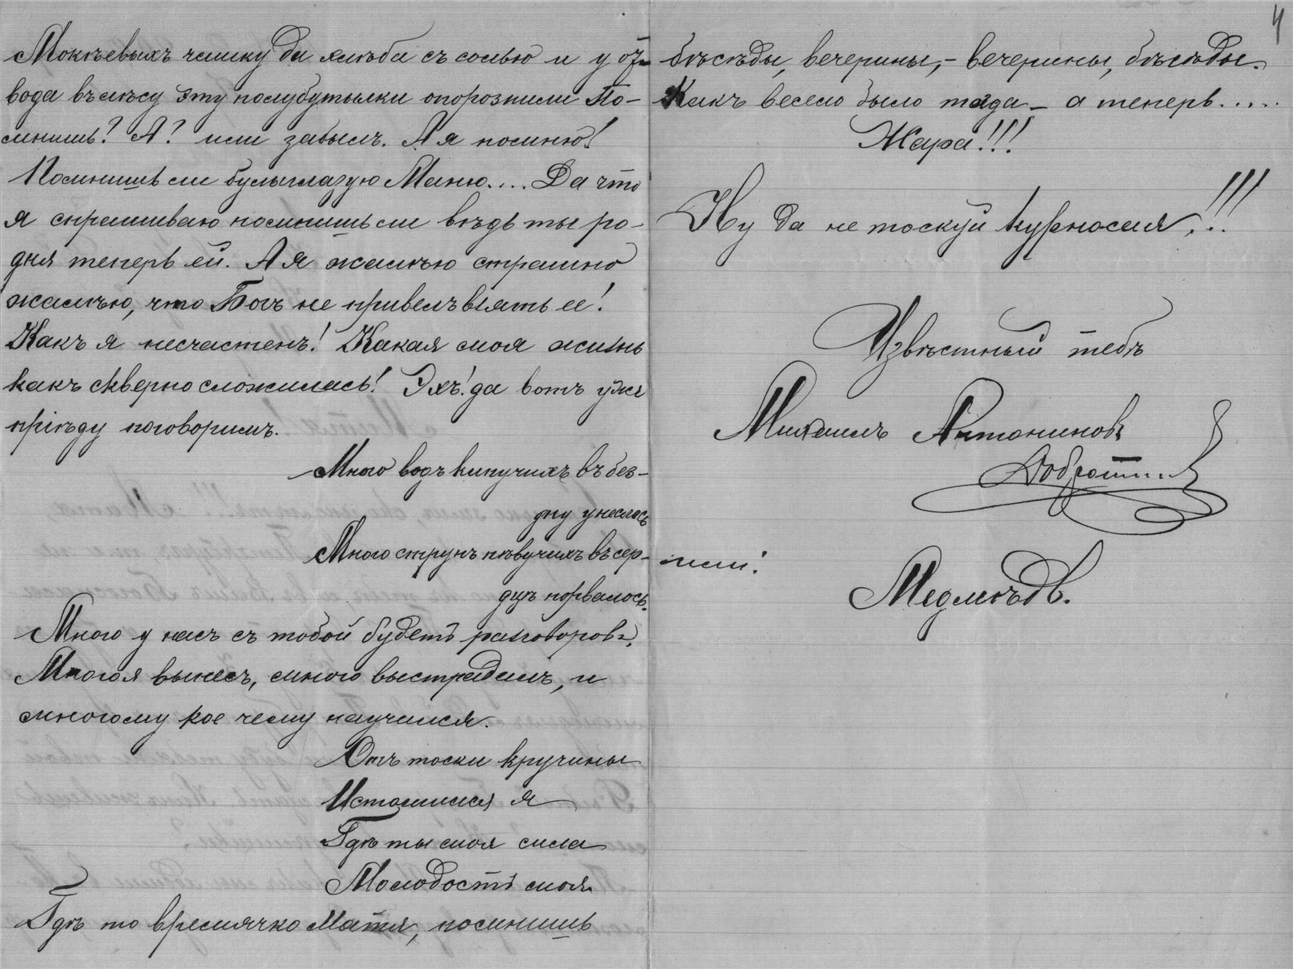 Мокѣевыхъ чашку да хлѣба съ солью и у от-
вода въ лѣсу эту полубутылки опорознили По-
мнишь? А? или забылъ. А я помню!
Помнишь ли булыглазую Маню.... Да что
я спрашиваю помнишь ли вѣдь ты ро-
дня теперь ей. А я жалѣю страшно
жалѣю, что Богъ не привелъ взять ее!
Какъ я несчастенъ! Какая моя жизнь
какъ скверно сложилась! Эхъ! да вотъ уже
пріѣду поговоримъ.
Много водъ кипучихъ въ без-
дну унеслось
Много струнъ пѣвучихъ въ сер-
дцѣ порвалось.
Много у насъ съ тобой будетъ разговоровъ,
Много я вынесъ, много выстрадалъ, и
многому кое чему научился.
Отъ тоски кручины
Истомился я
Гдѣ ты моя сила
Молодость моя
Гдѣ то времячко Матя, помнишь
4
бѣсѣды, вечерины, – вечерины, бѣсѣды.
Какъ весело было тогда – а теперь.....
Жара!!!
Ну да не тоскуй курносая,!!!
Извѣстный тебѣ
Михаилъ Антониновъ
или:
Медмѣдь.